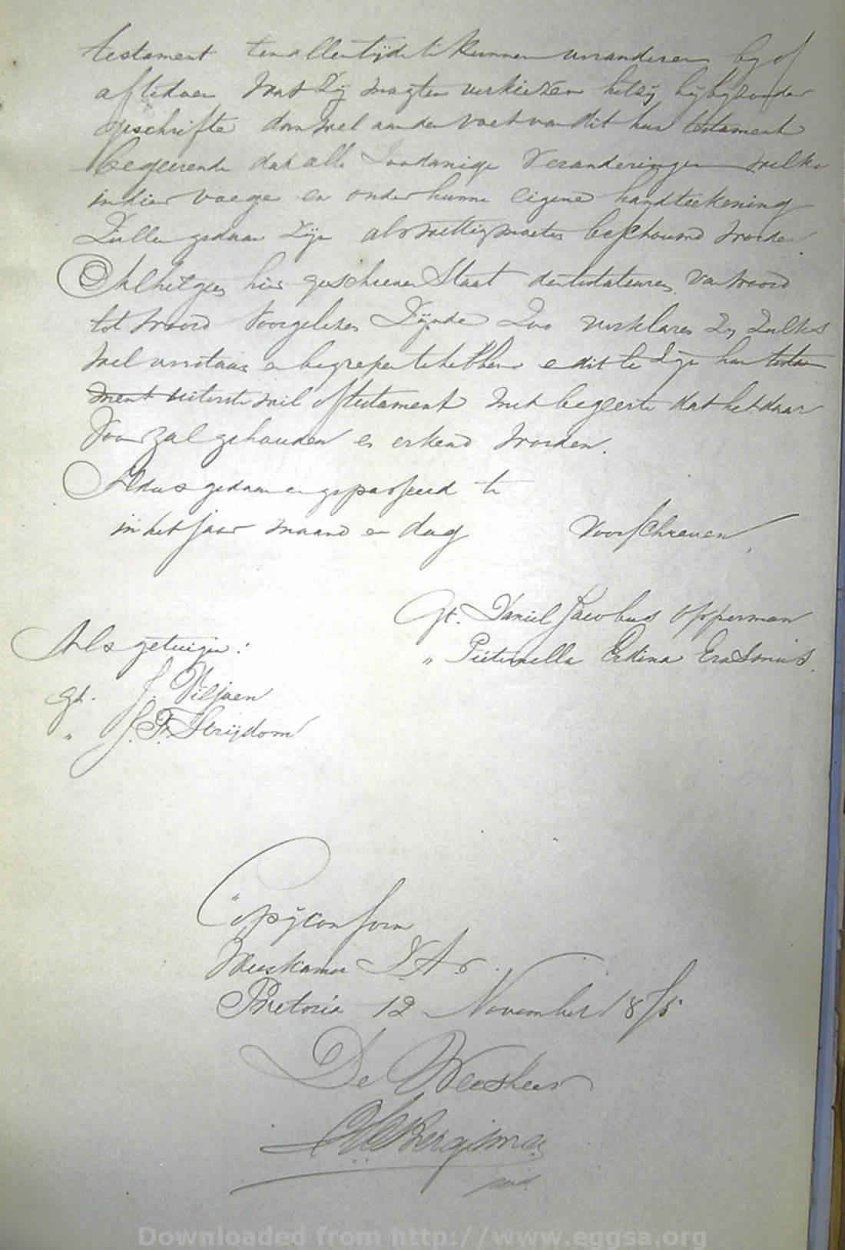 testament ten allen tijde te kunnen veranderen by of
aftedoen wat Zij mogten verkiezen hetzij bij byzonder
geschrifte dan wel aan den voet van dit hun testament
begeerende dat alle zoodanige Veranderingen welke
in dier voege en onder hunne eigene handteekening
Zullen gedaan Zijn als wettig moeten beschouwd worden.
Al hetgeen hier geschreven Staat den testateuren van woord
tot woord Voorgelezen Zijnde Zoo verklaren Zy Zulks
wel verstaan en begrepen te hebben en dit te Zijn hun testa
ment uiterste wil of testament met begeerte dat het daar
Voor zal gehouden en erkend worden.
Aldus gedaan en gepasseerd te
in het Jaar maand en dag Voorschreven.
Gt. Daniel Jacobus Opperman
" Pieternella Erasmus.
Als getuigen:
gt. J. Viljoen
" J. F. Strijdom
Copij conform
Weeskamer Z A R.
Pretoria 12 November 1875
De Weesheer
Bergsma
Downloaded from http://www.eggsa.org